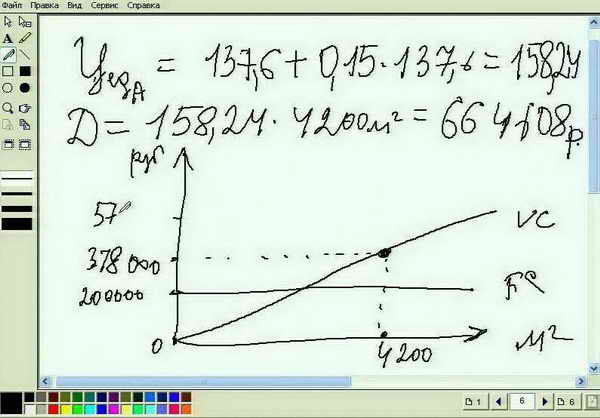 Файл Правка Вид Сервис Справка
Цед А = 137,6 + 0,15 · 137,6 = 158,24
Д = 158,24 · 4200 м² = 664608 р.
руб
57
VC
378 000
200000
FC
0
4200
м²
1
6
6